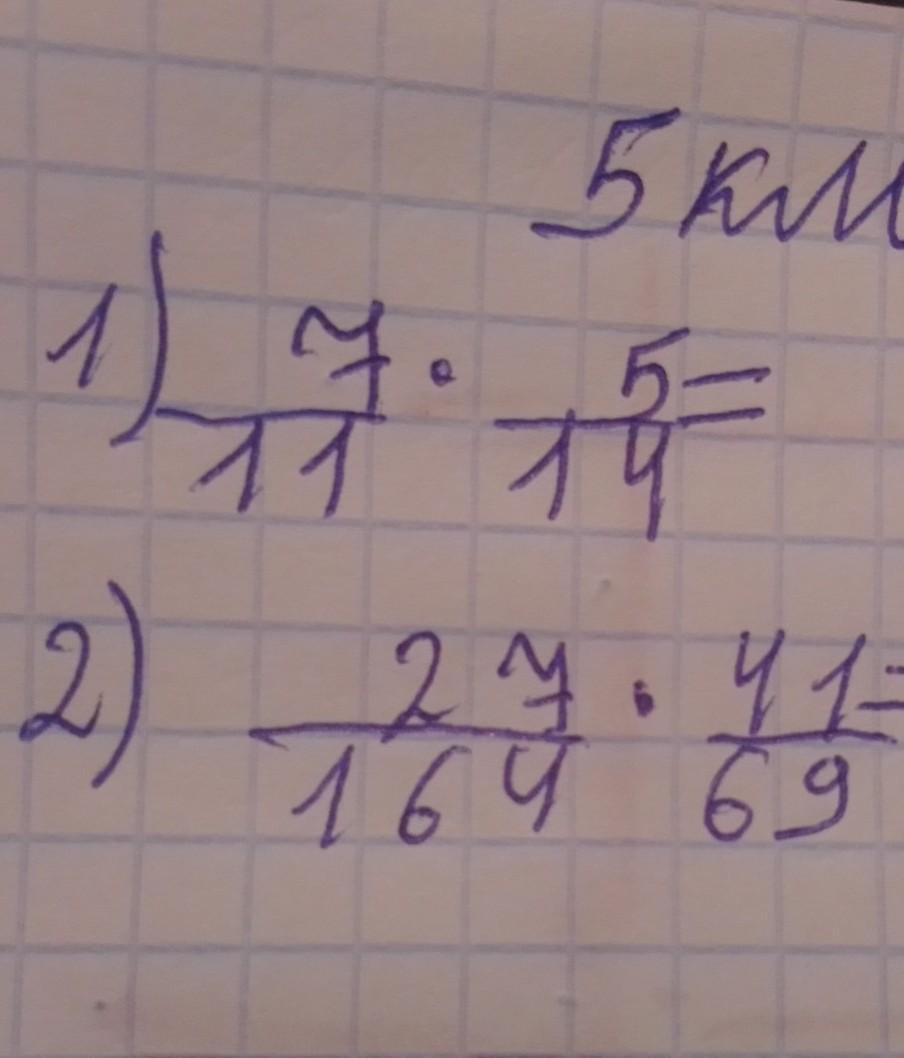 5 км
1) 7/11 · 5/14 =
2) 27/164 · 41/69 =